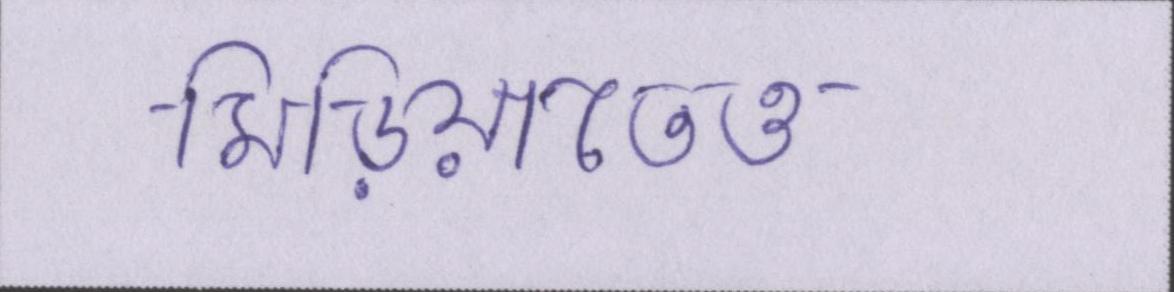 মিড়িয়াতেও